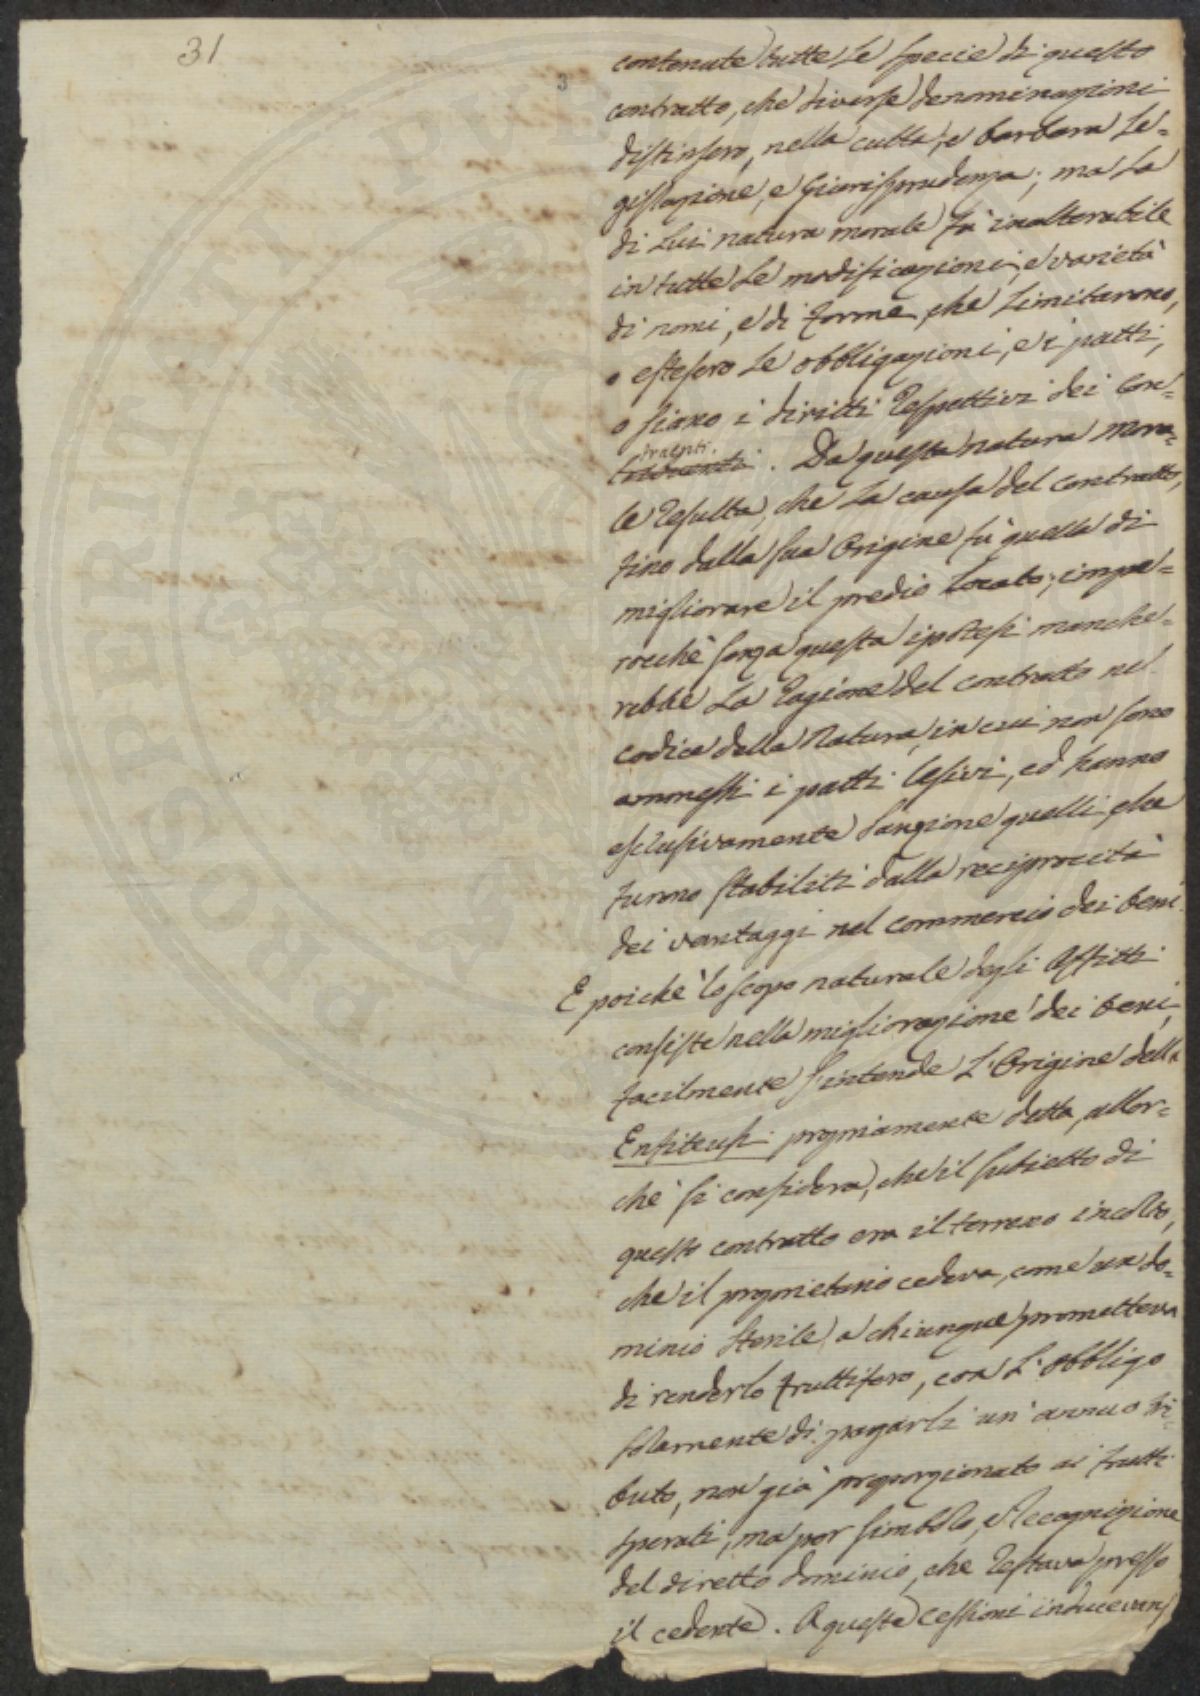 31
3
contenute tutte le specie di questo
contratto, che diverse denominazioni
distinsero, nella culta, e barbara Le=
gislazione, e Giurisprudenza; ma la
di Lui natura morale fù inalterabile
in tutte le modificazioni, e varietà
di nomi, e di forme, che limitarono,
o estesero le obbligazioni, e i patti,
o siano i diritti respettivi dei Con=
traenti.
. Da questa natura mora=
le resulta, che la causa del contratto,
fino dalla sua Origine fù quella di
migliorare il predio locato; impe=
rocchè senza questa ipotesi manche=
rebbe la ragione del contratto nel
codice della Natura, in cui non sono
ammessi i patti lesivi, ed hanno
esclusivamente sanzione quelli, che
furono stabiliti dalla reciprocità
dei vantaggi nel commercio dei beni.
E poichè lo scopo naturale degli Affitti
consiste nella migliorazione dei beni,
facilmente s'intende L'Origine della
Enfiteusi propriamente detta, allor=
chè si considera, che il subietto di
questo contratto era il terreno incolto,
che il proprietario cedeva, come un do=
minio sterile, a chiunque prometteva
di renderlo fruttifero, con L'obbligo
solamente di pagarli un' annuo tri=
buto, non già proporzionato ai frutti
sperati, ma per simbolo, e Recognizione
del diretto dominio, che restava presso
il cedente. A queste cessioni inducevansi